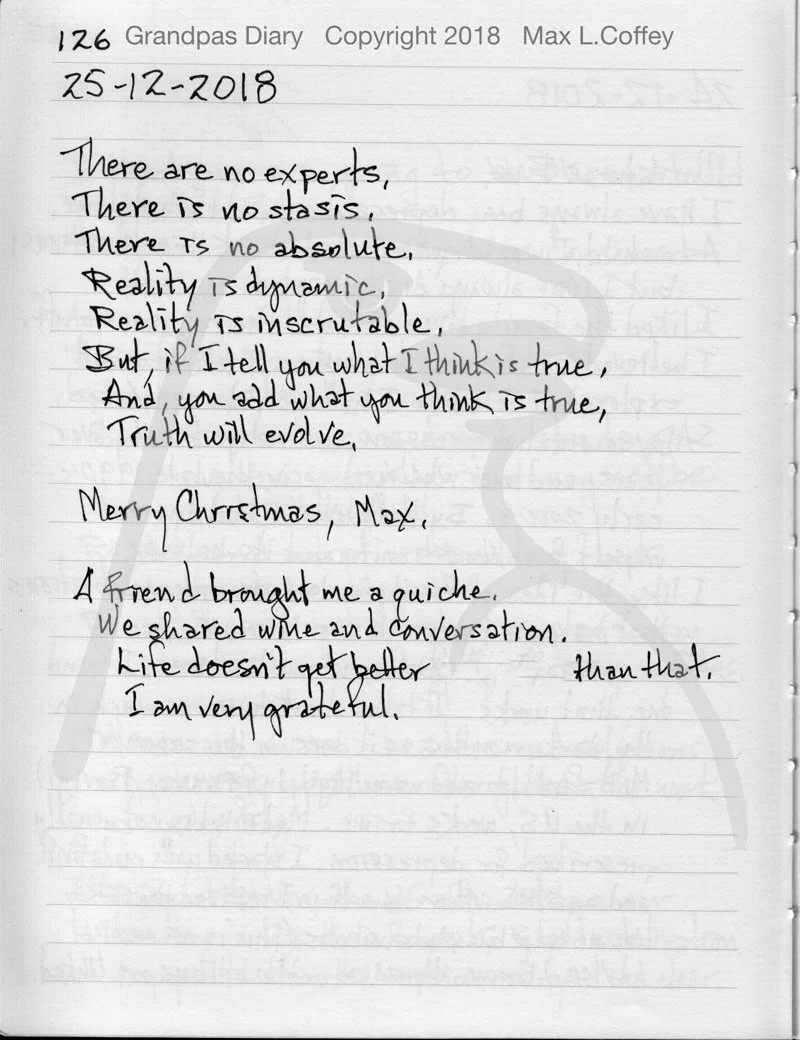 126 Grandpas Diary Copyright 2018 Max L.Coffey
25-12-2018
There are no experts,
There is no stasis,
There is no absolute,
Reality is dynamic,
Reality is inscrutable,
But, if I tell you what I think is true,
And, you add what you think is true,
Truth will evolve.
Merry Christmas, Max.
A friend brought me a quiche.
We shared wine and conversation.
Life doesn't get better than that.
I am very grateful.